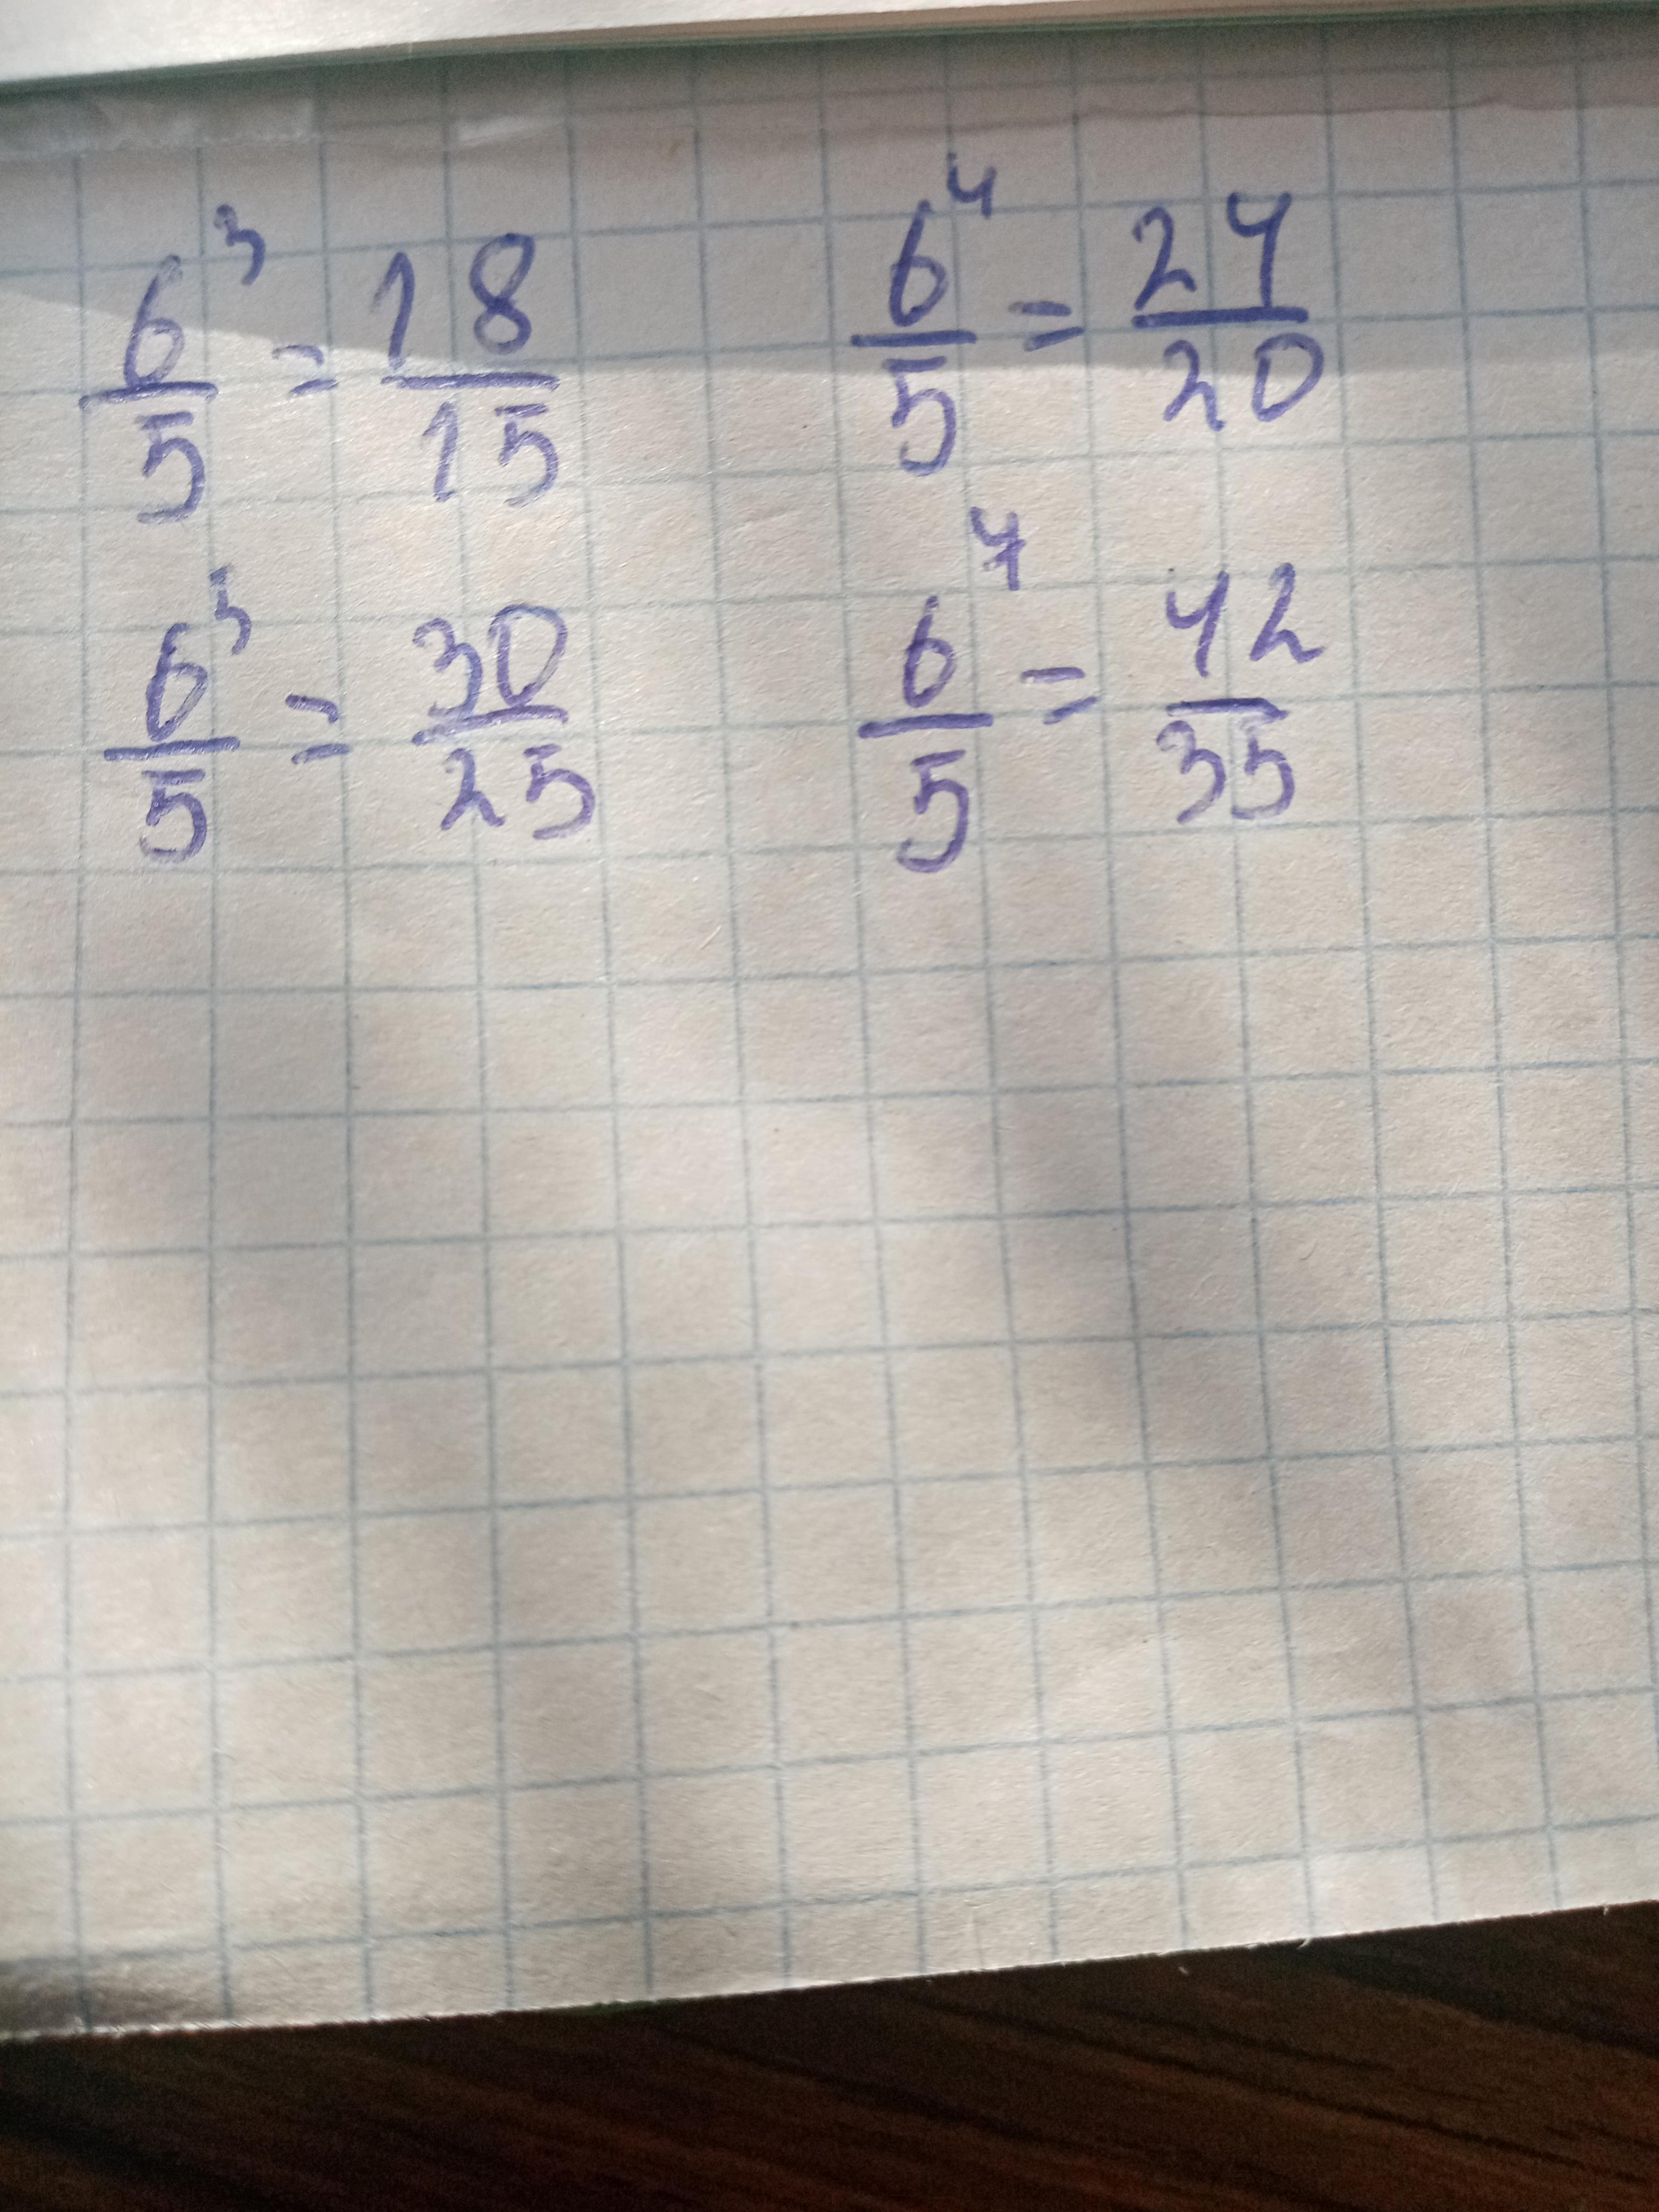 6³/5 = 18/15   6⁴/5 = 24/20
6⁵/5 = 30/25   6⁷/5 = 42/35